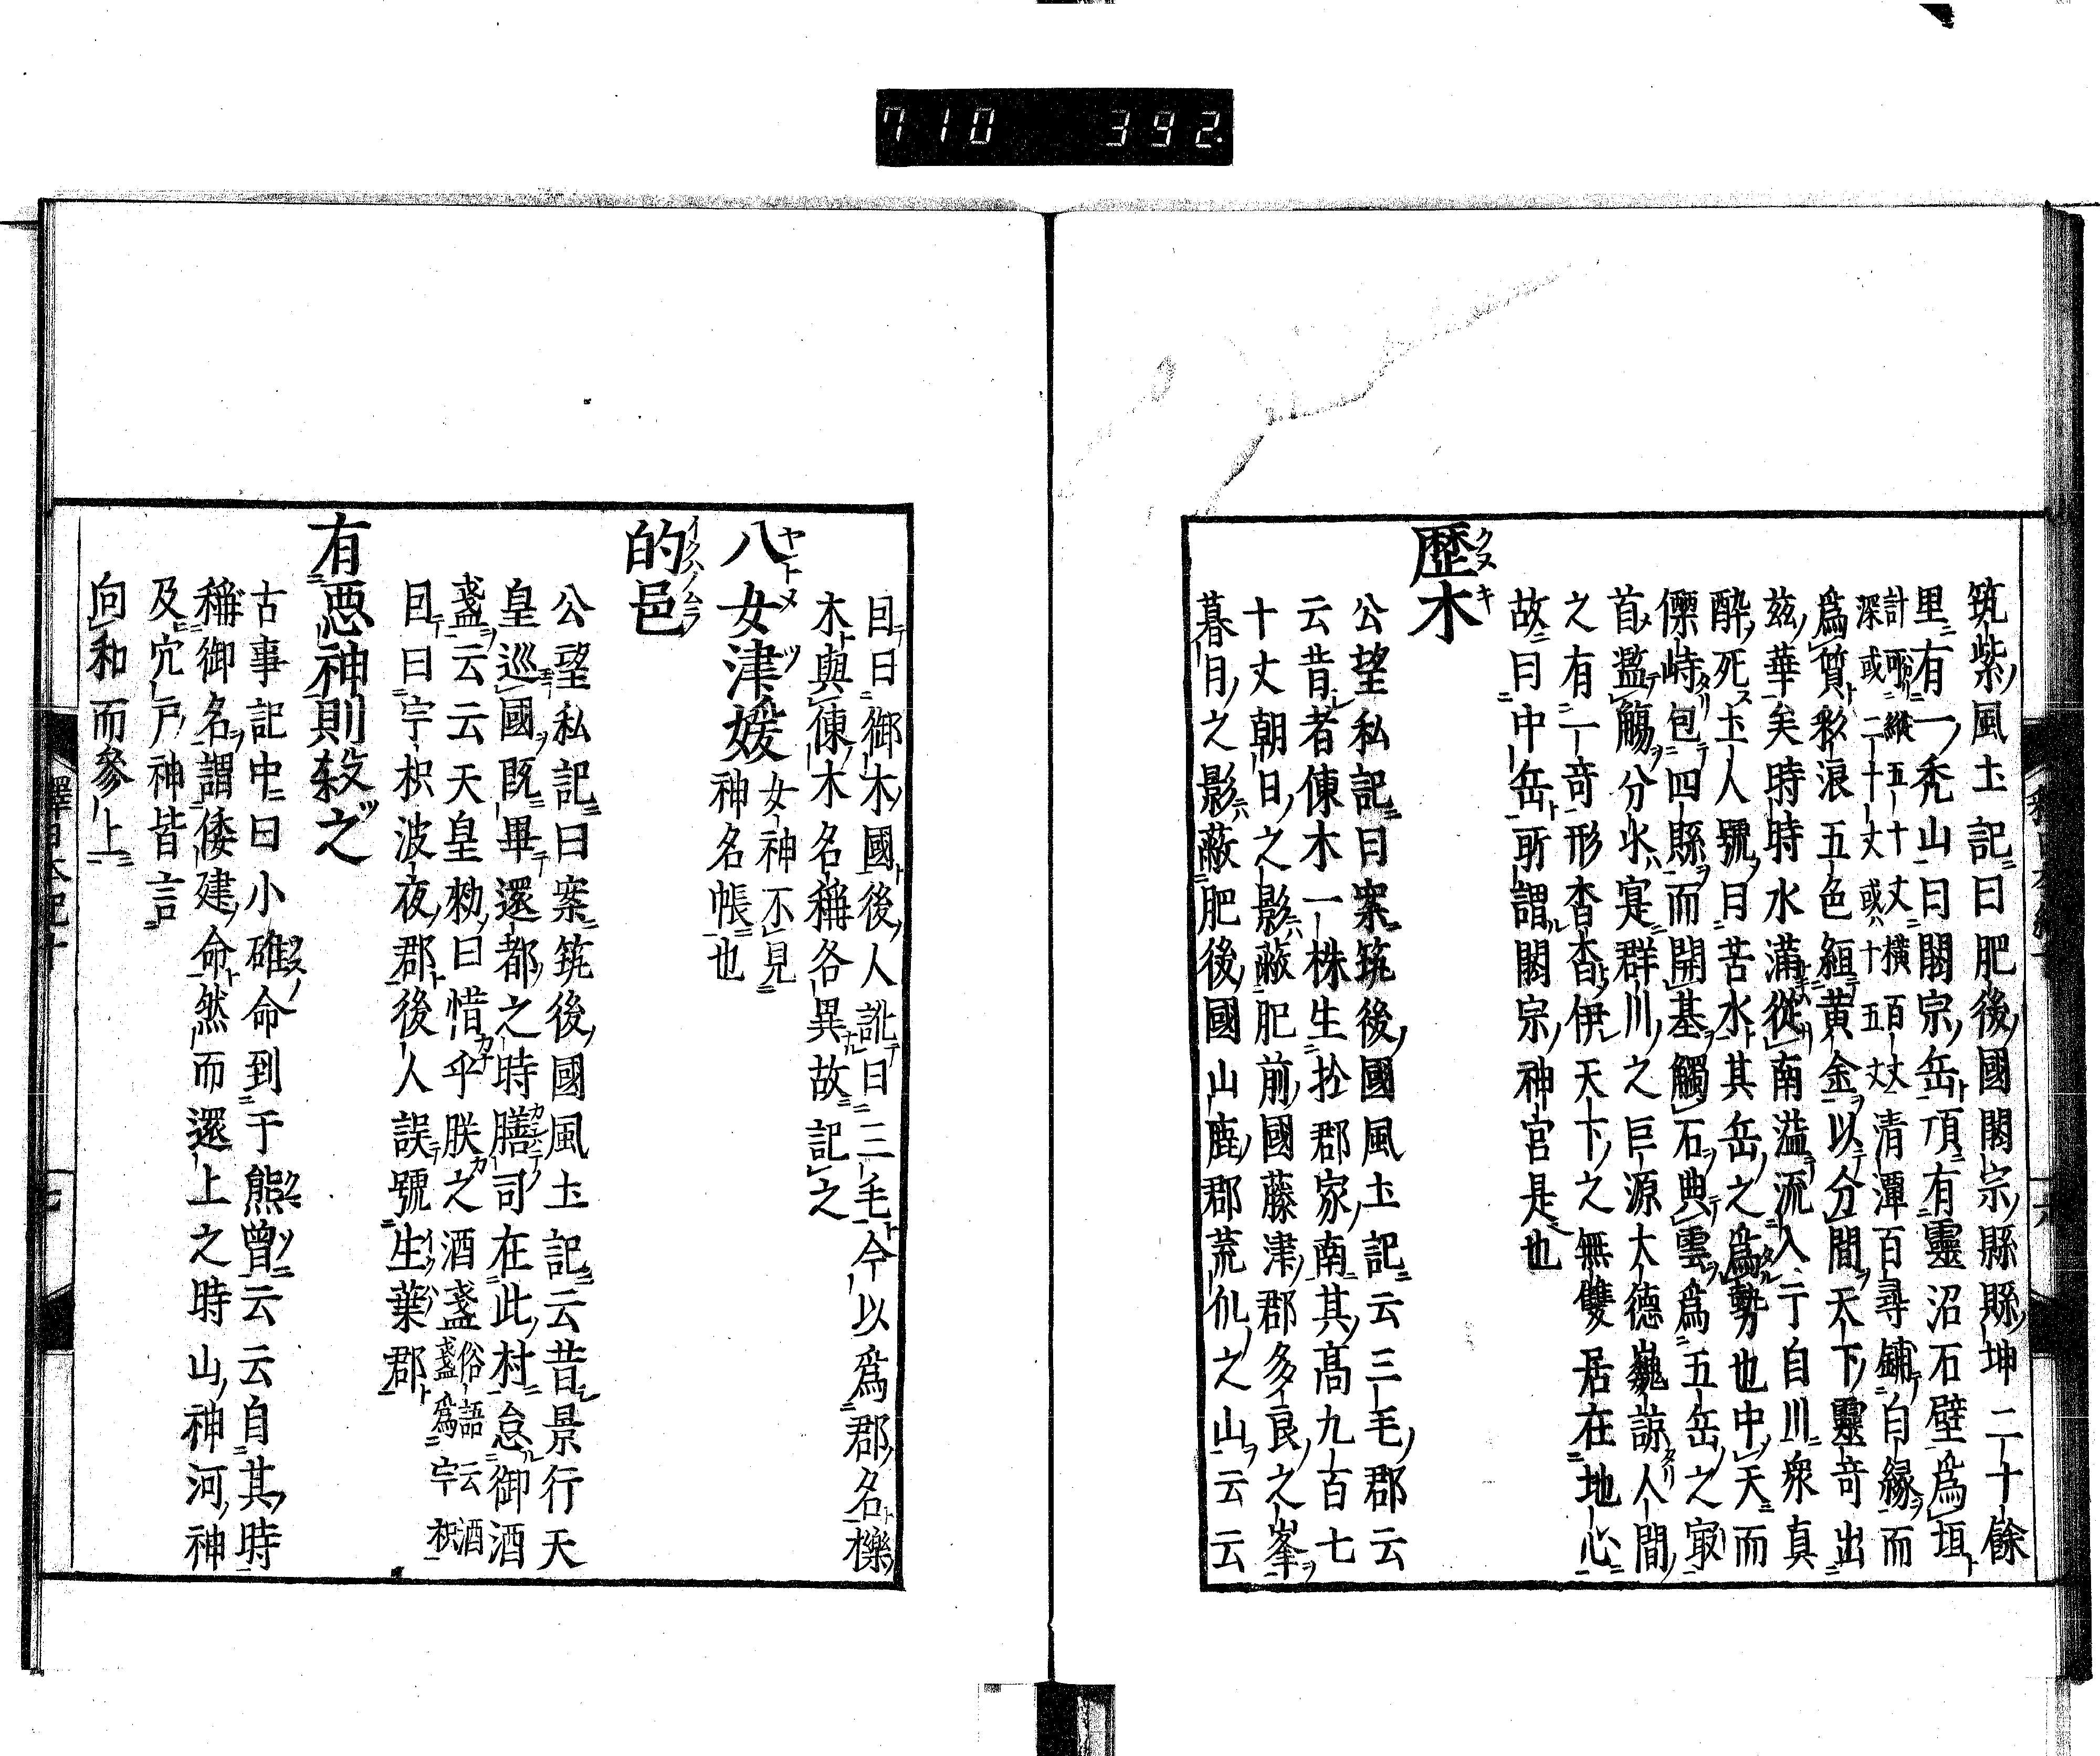 710 392
筑紫風土記曰肥後國閼宗縣縣坤二十餘
里有一禿山曰閼宗岳頂有靈沼石壁爲垣
計可縱五十丈橫百丈深或二十丈或十五丈清潭百尋鋪白緑而
爲質彩浪五色絙黄金以分間天下靈奇出
茲華矣時時水滿從南溢流入于白川衆魚
醉死土人號曰苦水其岳之爲勢也中天而
傑峙包四縣而開基觸石興雲爲五岳之冣
首濫觴分水寔群川之巨源大德巍巍諒人間
之有一奇形杳杳伊天下之無雙居在地心
故曰中岳所謂閼宗神宮是也
歷木
公望私記曰案筑後國風土記云三毛郡云
云昔者楝木一株生扵郡家南其高九百七
十丈朝日之影蔽肥前國藤津郡多良之峯
暮日之影蔽肥後國山鹿郡荒爪之山云云
因曰御木國後人訛曰三毛今以爲郡名櫟
木與楝木名稱各異故記之
八女津媛女神不見神名帳也
的邑
公望私記曰案筑後國風土記云昔景行天
皇巡國既畢還都之時膳司在此村忘御酒
盞云云天皇勅曰惜乎朕之酒盞俗語云酒盞爲宇枳
因曰宇枳波夜郡後人誤號生葉郡
有惡神則殺之
古事記中曰小碓命到于熊曾云云自其時
稱御名謂倭建命然而還上之時山神河神
及穴戶神皆言
向和而參上
釋日本紀十
七